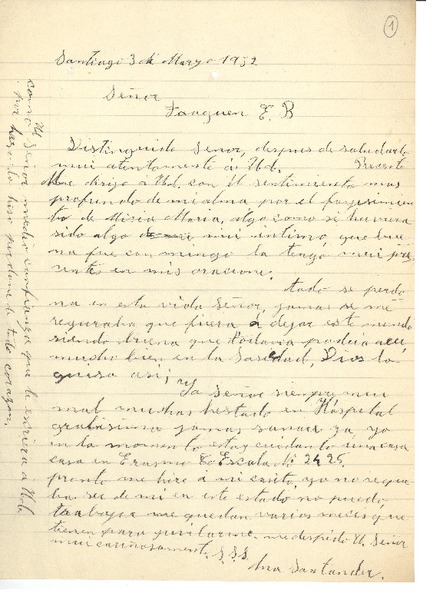 1
Santiago 3 de Marzo 1932
Señor
Joaquen E. B
Distinguido Señor, despues de saludarlo
mui atentamente á Ud. Presente
Me dirijo a Ud, con el sentimiento mas
profundo de mi alma por el
to de Misia Maria, algo como si huviera
sido algo mui intimo, que bue
na fue con migo la tengo mui pre
sente en mis oracione.
todo se perdo
na en esta vida Señor, jamas se me
feguraba que fuera á dejar este mundo
siendo buena que todavia podia
mucho bien en la Saciedad, Dios lo
quiso asi;
Yo Señor siempre mui
mal muchas hestado en Hóspital
jamas sanare ya yo
en la momento estoy cuidando una casa
casa en Erasmo Escala Nº 2425.
pronto me hire á mi casita, ya no
sera de mi en este estado no puedo
trabajar me quedan varios meces que
tienen para jubilarme. me despido Ud. Señor
mui cariñosamente. S.S.S.
Ana Santander.
como Ud Señor mucha confianza que le escriva a Ud.
por hesto lo hise perdone de todo corazon.